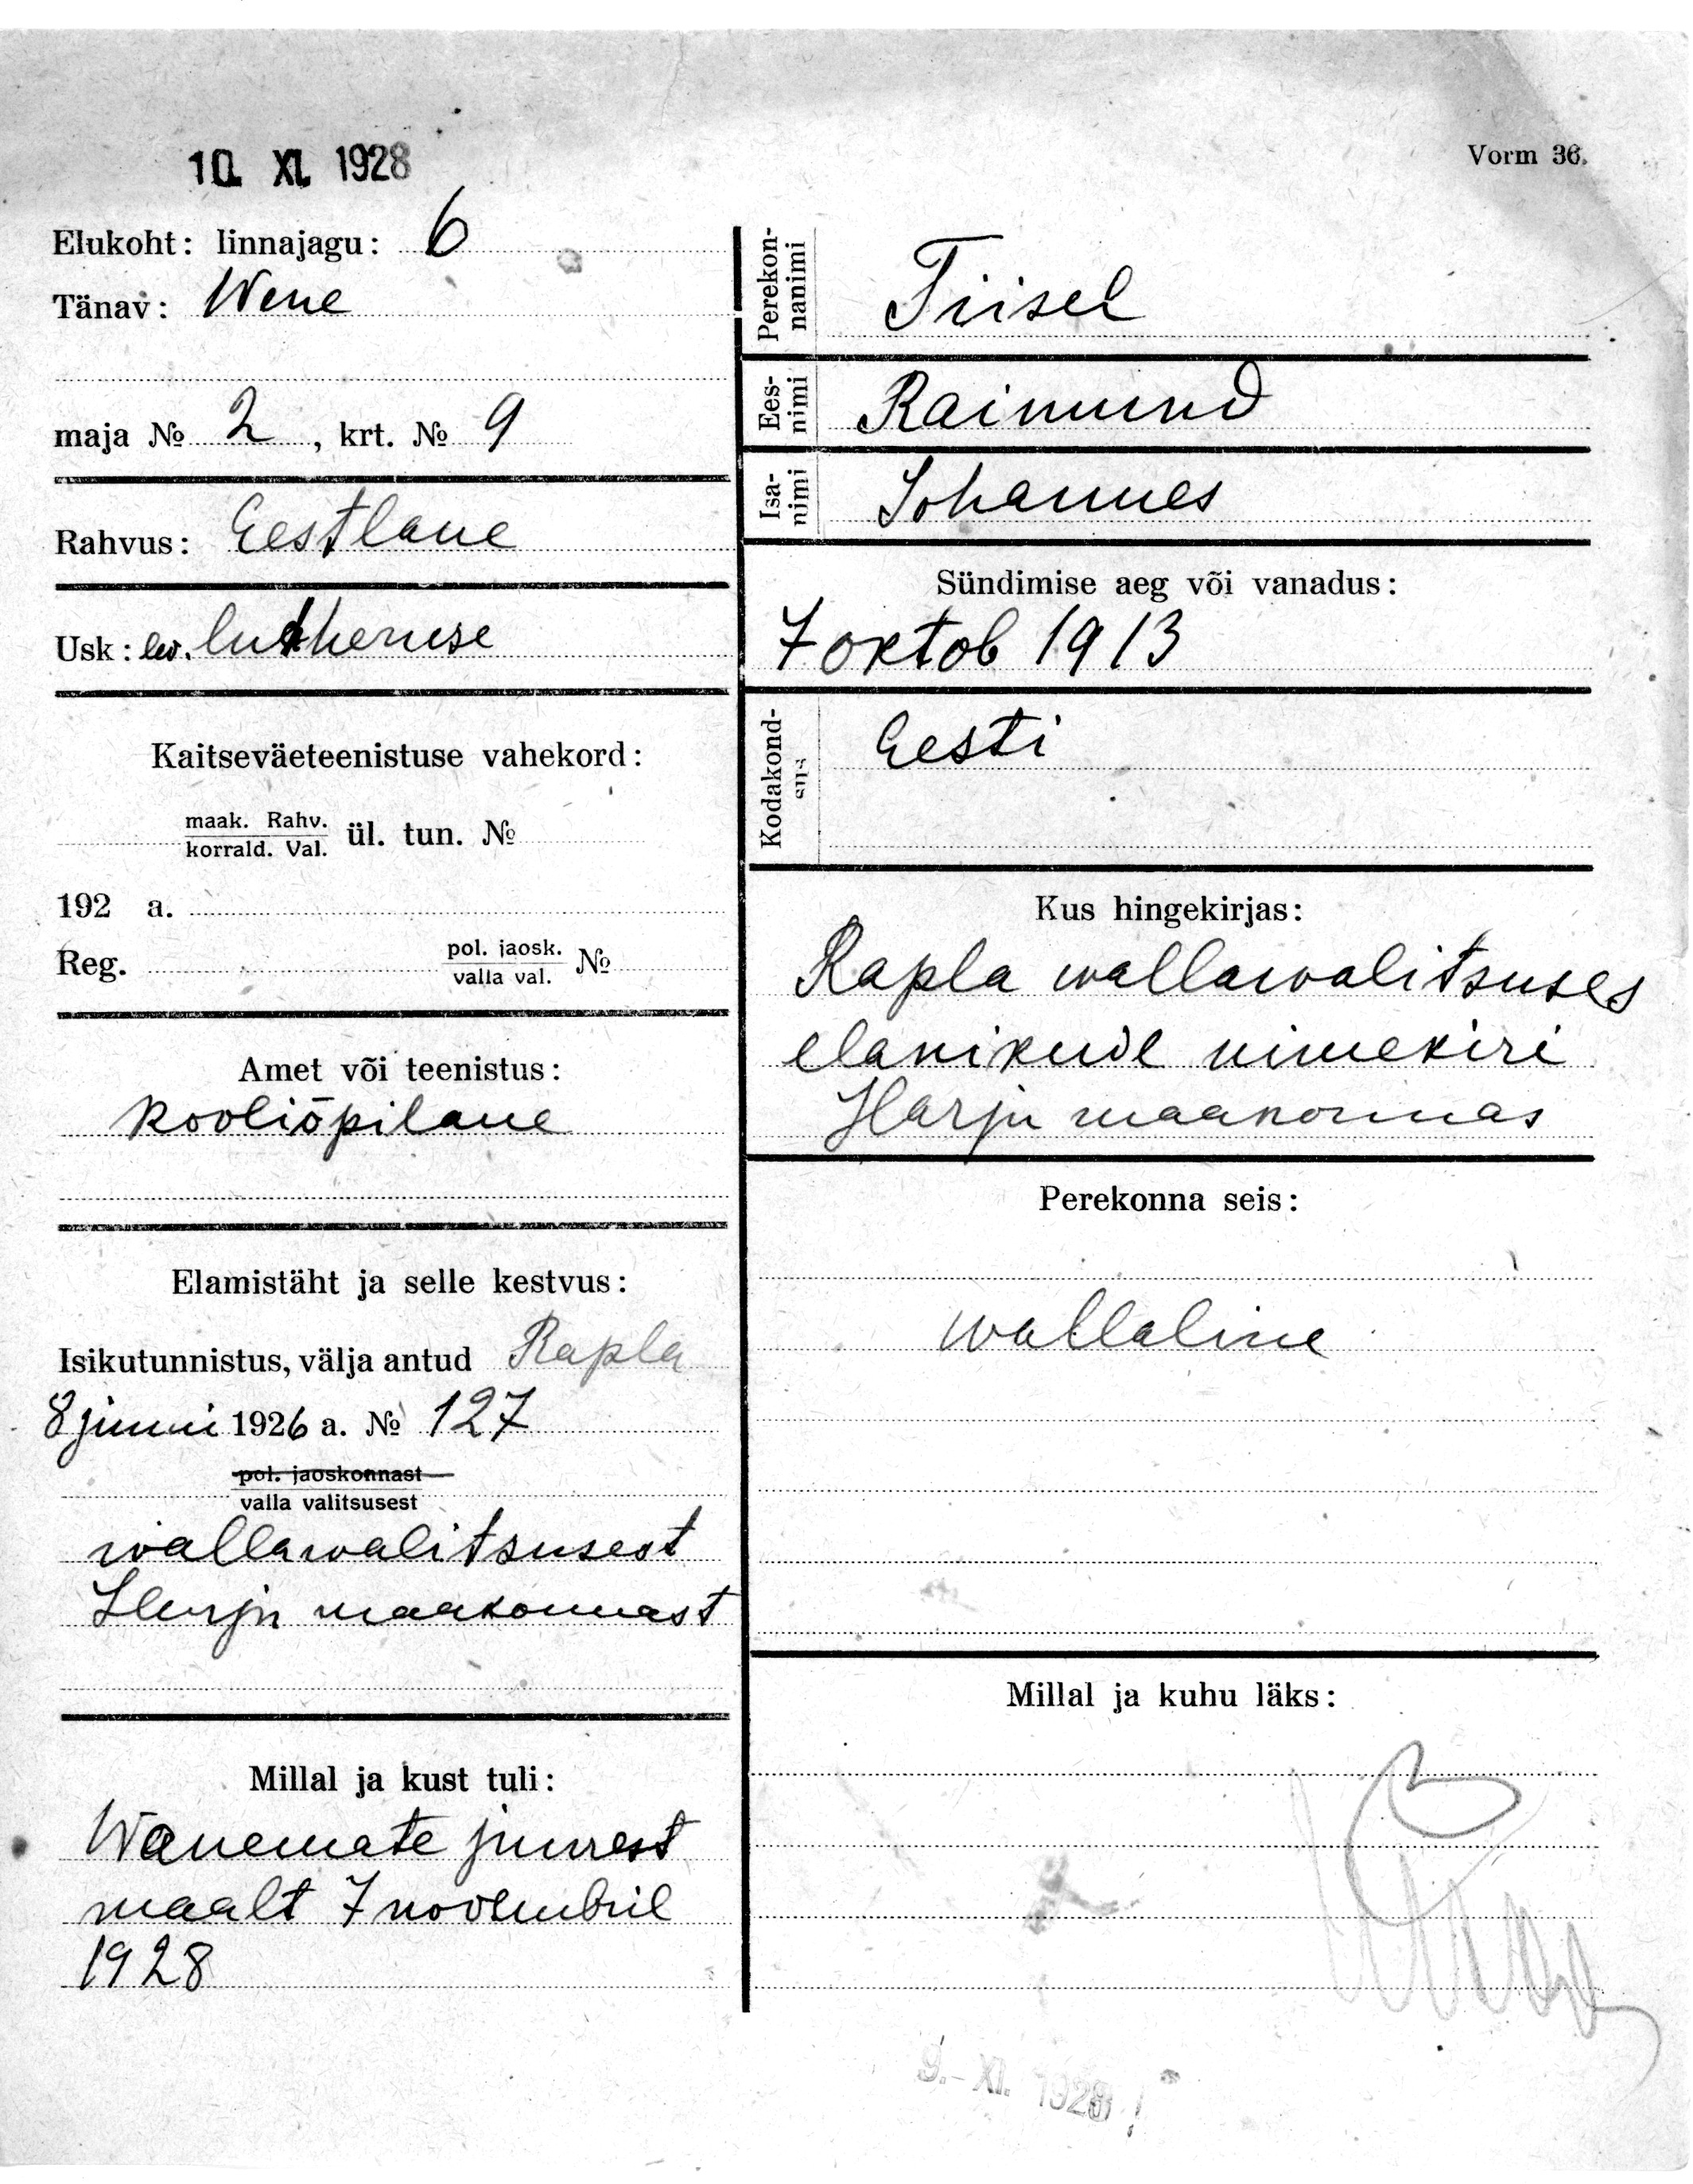 10. XI. 1928
Vorm 36.
Elukoht: linnajagu: 6
Tänav: Wene
maja № 2, krt. № 9
Rahvus: Eestlane
Usk: ev. lutheruse
Kaitseväeteenistuse vahekord:
maak. Rahv.
korrald. Val. ül. tun. №
192 a.
Reg. pol. jaosk.
valla val. №
Amet või teenistus:
kooliõpilane
Elamistäht ja selle kestvus:
Isikutunnistus, välja antud Rapla
8 juuni 1926 a. № 127
pol. jaoskonnast
valla valitsusest
wallawalitsusest
Harju maakonnast
Millal ja kust tuli:
Wanemate juurest
maalt 7 novembril
1928
Perekon-
nanimi
Tiisel
Ees-
nimi
Raimund
Isa-
nimi
Johannes
Sündimise aeg või vanadus:
7 oktob 1913
Kodakond-
sus
Eesti
Kus hingekirjas:
Rapla wallawalitsuses
elanikude nimekiri
Harju maakonnas
Perekonna seis:
wallaline
Millal ja kuhu läks:
9. - XI. 1928